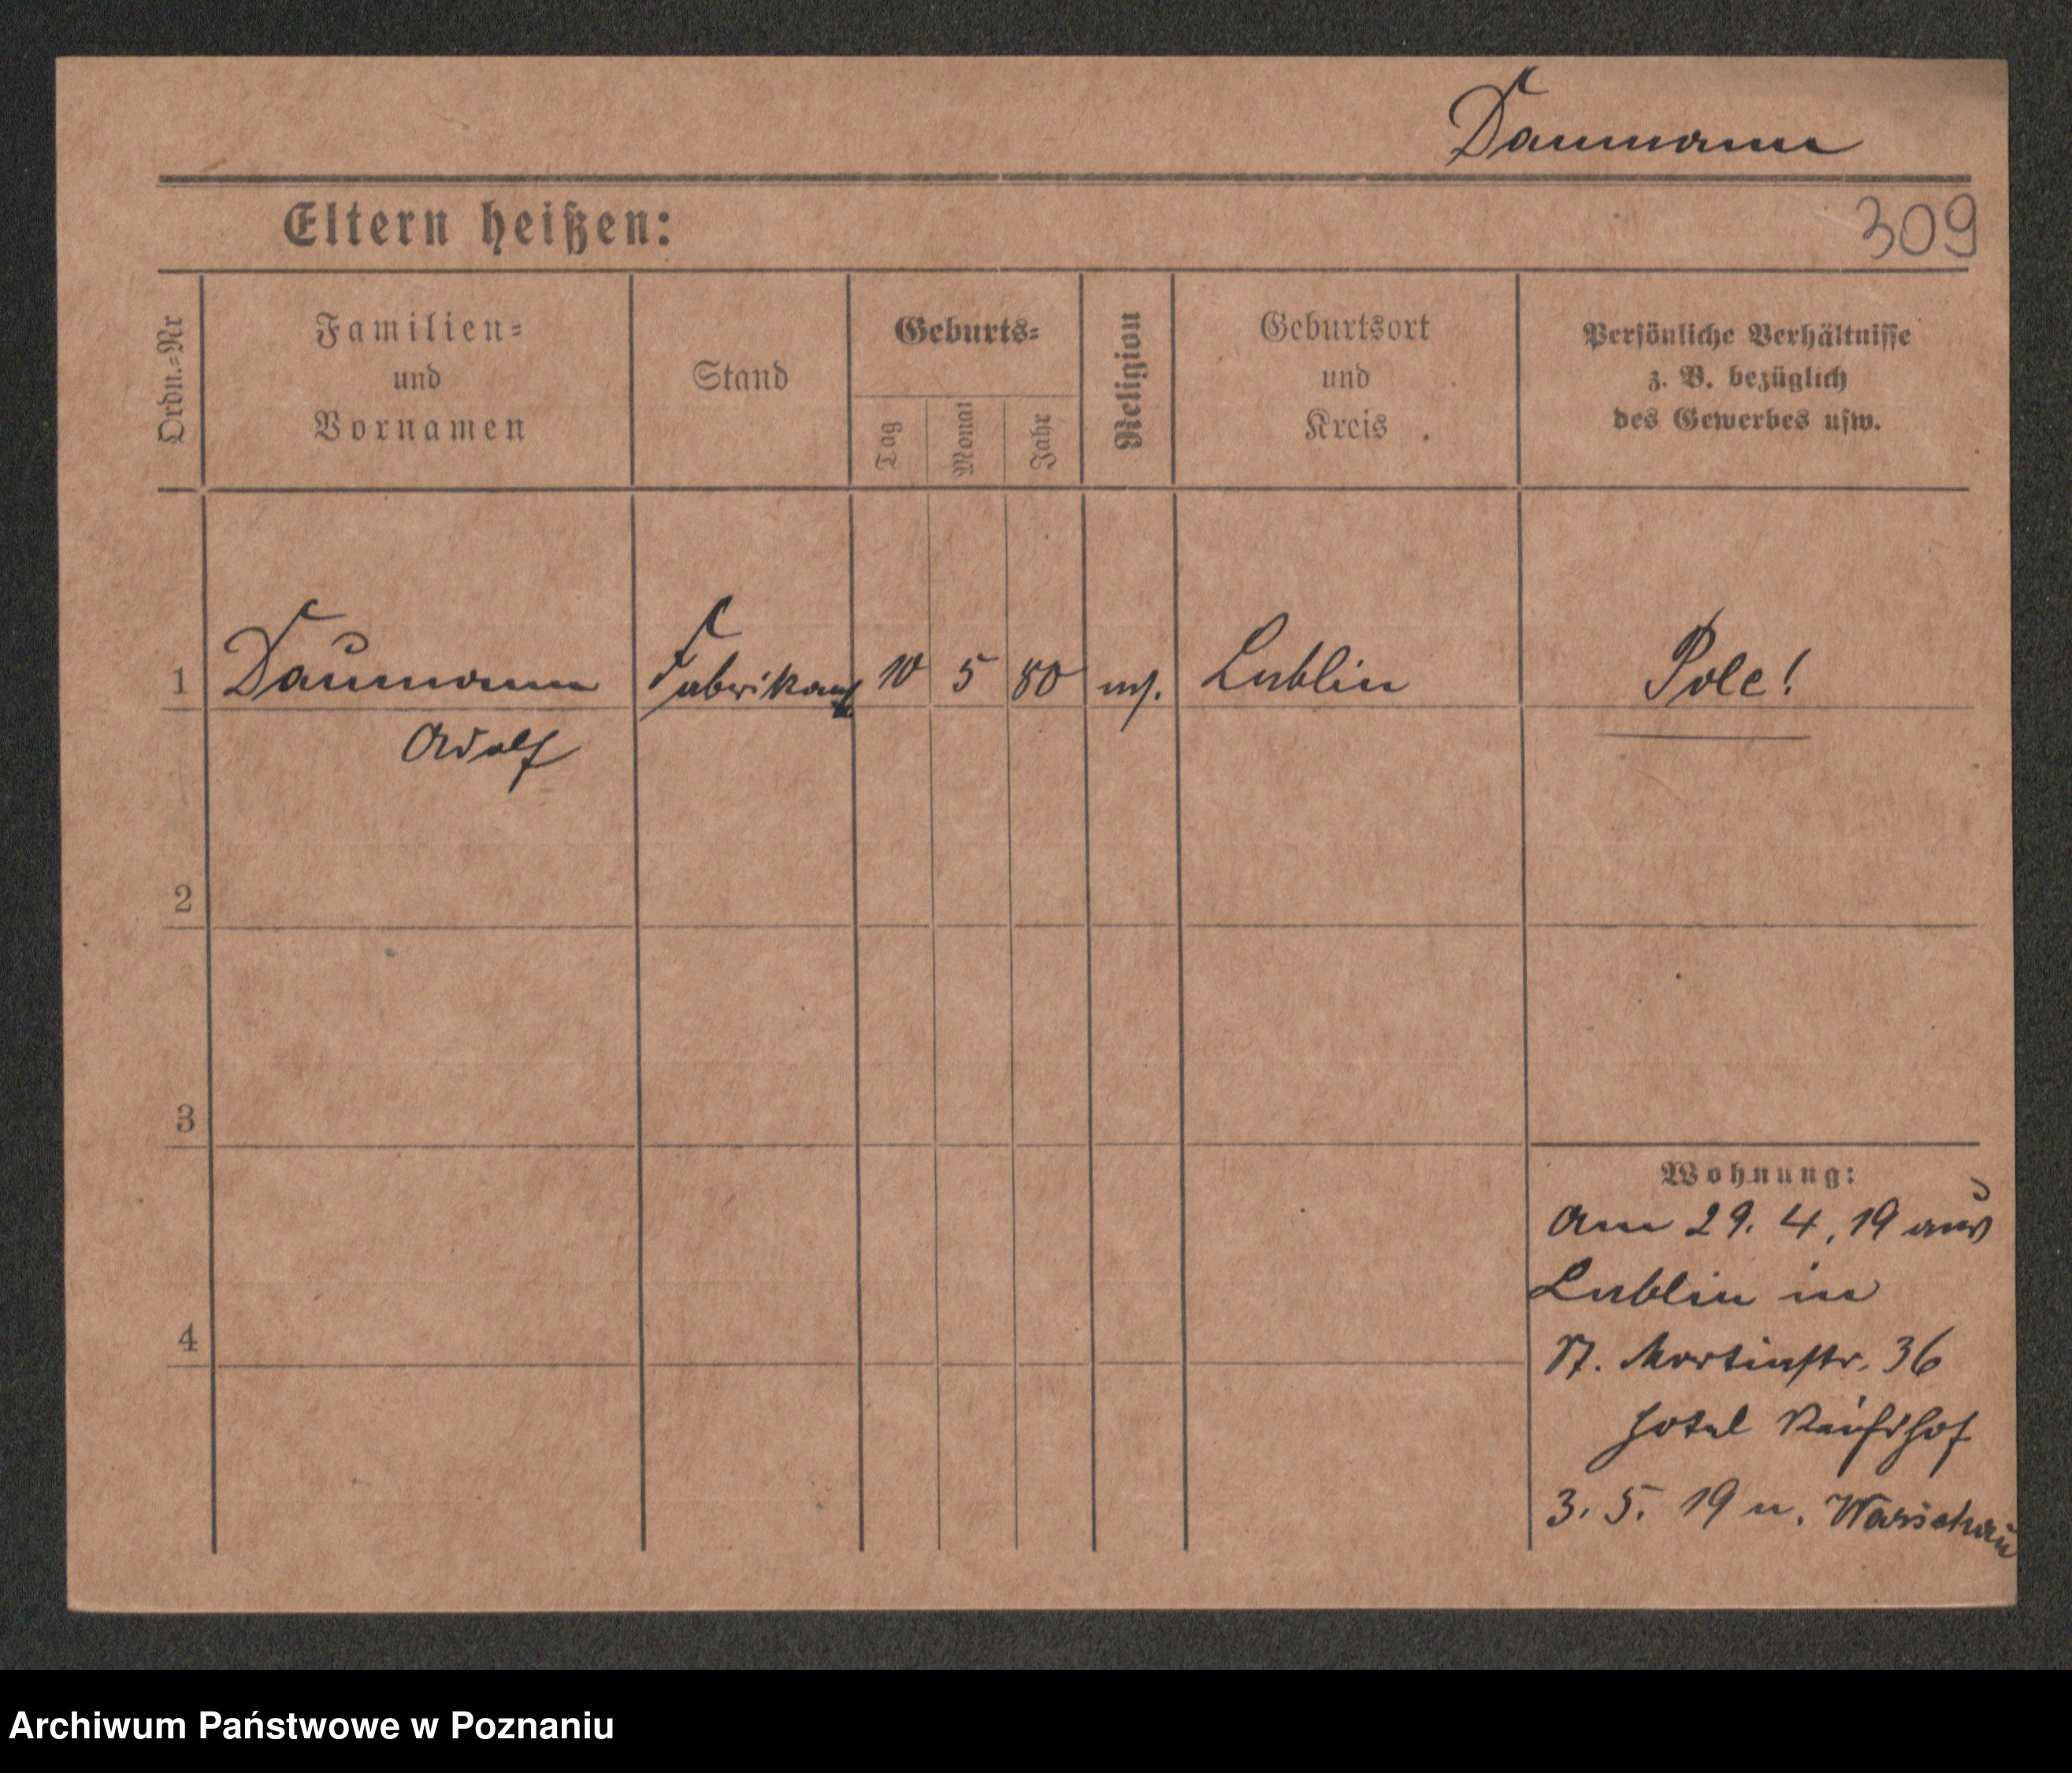 Daumann
Eltern heißen:
309
Ordn.=Nr
Familien=
und
Vornamen
Stand
Geburts=
Tag
Monat
Jahr
Religion
Geburtsort
und
Kreis
Persönliche Verhältnisse
z. B. bezüglich
des Gewerbes usw.
1 Daumann Fabrikant 10 5 80 Lublin Pole!
Adolf
2
3
4
Wohnung:
Am 29. 4. 19 aus
Lublin in
St. Martinstr. 36
Hotel Reichshof
3. 5. 19 n. Warschau
Archiwum Państwowe w Poznaniu